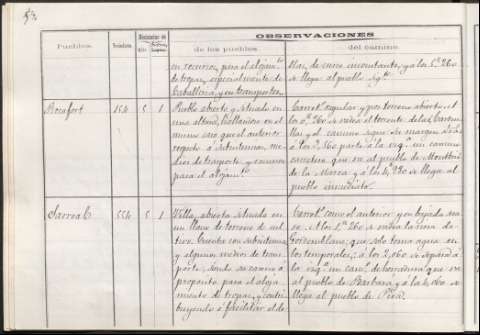 OBSERVACIONES
Pueblos.
Vecindario
de los pueblos
del camino
en recursos, para el alojam.to
de tropas, especialmente de
Caballeria, y en transportes.
llas, de unos cincuenta, y a los 5.260
se llega al pueblo sig.te
Rocafort
154
5
1
Pueblo abierto y situado en
una altura, hallandose en el
mismo caso que el anterior
respecto á subsistencias, me-
dios de trasporte, y recursos
para el alojam.to
Carret.a regular y por terreno abierto, á
los 0,260 se vadea el torrente de la
y el camino sigue su margen
á los 2,560 parte á la izq.a un camino
carretero que va al pueblo de
de la Marca y á los 4,220 se llega al
pueblo inmediato.
Sarreal
554
5
1
Villa, abierta situada en
un llano de terreno de cul-
tivo. Cuenta con subsistencias
y algunos medios de tras-
porte, siendo su caserio á
proposito para el aloja-
miento de tropas, y contri-
buyendo á facilitar el de
Carret.a como el anterior y en bajada sua-
ve. A los 1.260 se vadea la rivera de
que solo toma agua en
los temporales; á los 2,060 se separa á
la izq.a un cam.o de herradura que va
al pueblo de Barbará y á los 4,060 se
llega al pueblo de Pira.